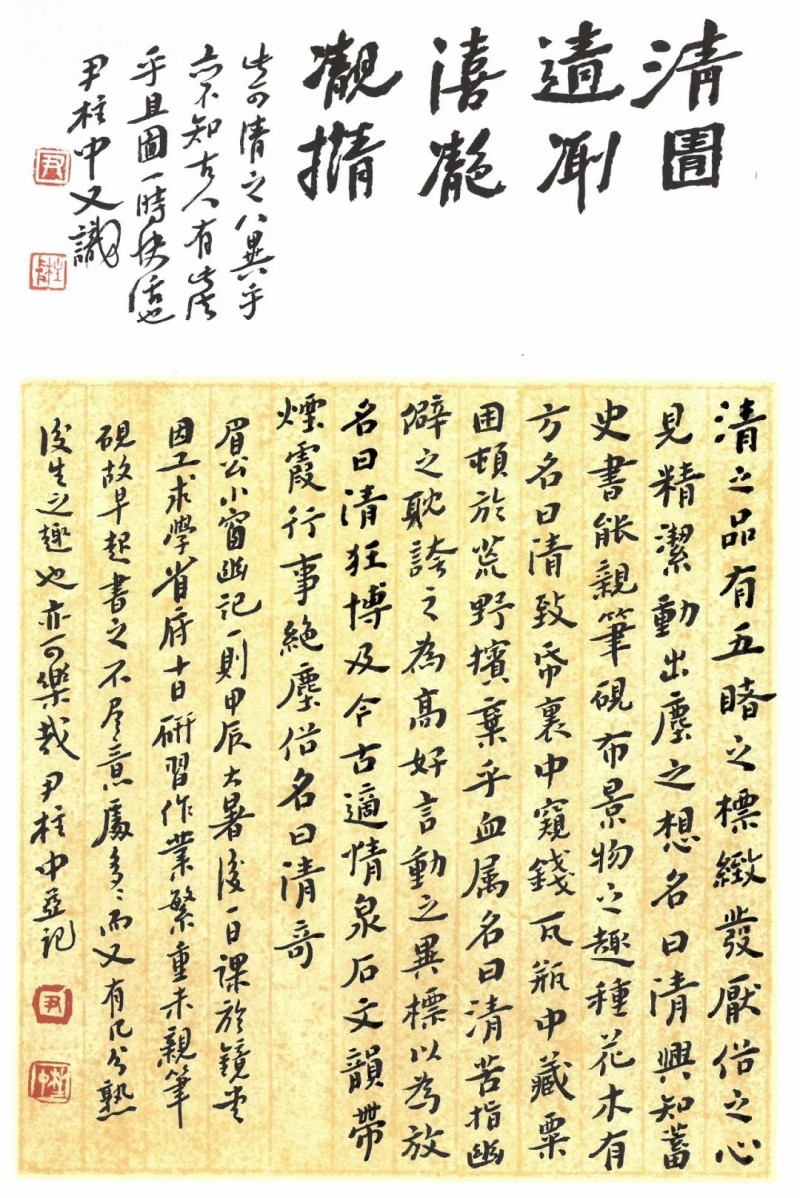 清圊
此可清之八異乎
亦不知古人有此法
乎且圖一時快活也
尹柱中又識
尹
清之品有五睹之標緻發厭俗之心
見精潔動出塵之想名曰清興知蓄
史書能親筆硯布景物之趣種花木有
方名曰清致帋裏中窺錢瓦瓶中藏粟
困頓於荒野擯棄乎血属名曰清苦指幽
僻之耽誇之為高好言動之異標以為放
名曰清狂博及今古適情泉石文韻帶
煙霞行事絕塵俗名曰清竒
眉公小窗幽記一則甲辰大暑後一日課於鏡堂
因工求學省府十日研習作業繁重未親筆
硯故早起書之不盡意處多〻而又有几分熟
後生之趣也亦可樂哉尹柱中並記
尹